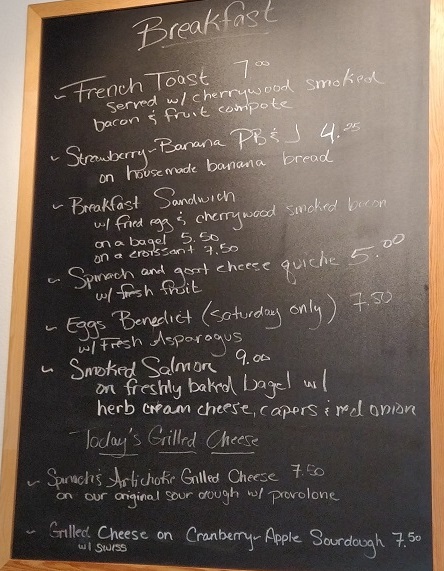 Breakfast
~ French Toast 7.00
served w/ cherrywood smoked
bacon & fruit compote
~ Strawberry-Banana PB & J 4.25
on housemade banana bread
~ Breakfast Sandwich
w/ fried egg & cherrywood smoked bacon
on a bagel 5.50
on a croissant 7.50
~ Spinach and goat cheese quiche 5.00
w/ fresh fruit
~ Eggs Benedict (Saturday only) 7.50
w/ Fresh Asparagus
~ Smoked Salmon 9.00
on freshly baked bagel w/
herb cream cheese, capers & red onion
Today's Grilled Cheese
~ Spinach & Artichoke Grilled Cheese 7.50
on our original sour dough w/ provolone
~ Grilled Cheese on Cranberry-Apple Sourdough 7.50
w/ swiss